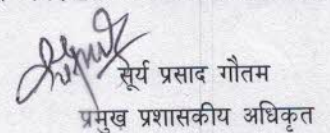 सूर्य प्रसाद गौतम
प्रमुख प्रशासकीय अधिकृत